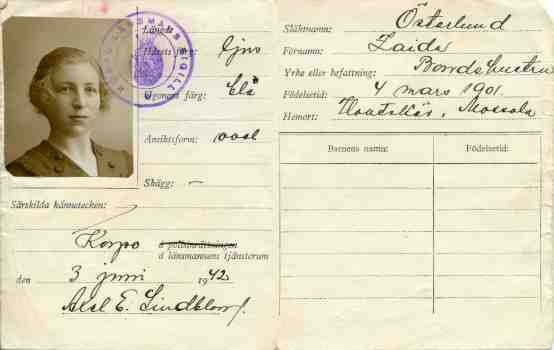 Längd:
Hårets färg: ljus
Ögonens färg: blå
Ansiktsform: oval
Skägg: –
Särskilda kännetecken:
Korpo å polisinrättningen
å länsmansens tjänsterum
den 3 juni 1942
Axel E. Lindblom
LÄNSMANS SIGILL
Släktnamn: Österlund
Förnamn: Zaida
Yrke eller befattning: Bondehustru
Födelsetid: 4 mars 1901.
Hemort: Houtskär, Mossala
Barnens namn: Födelsetid: